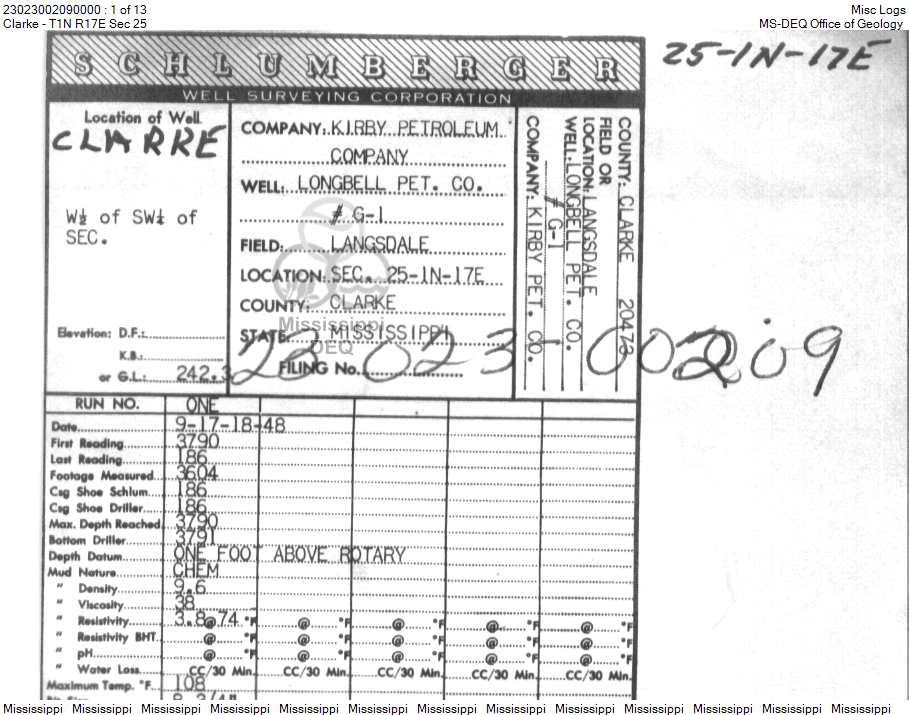 23023002090000 : 1 of 13
Misc Logs
Clarke - T1N R17E Sec 25
MS-DEQ Office of Geology
25-1N-17E
SCHLUMBERGER
WELL SURVEYING CORPORATION
Location of Well
CLARKE
W½ of SW¼ of
SEC.
Elevation: D.F.:
K.B.:
or G.L.: 242.3
COMPANY: KIRBY PETROLEUM
COMPANY
WELL: LONGBELL PET. CO.
# G-1
FIELD: LANGSDALE
LOCATION: SEC. 25-1N-17E
COUNTY: CLARKE
STATE: MISSISSIPPI
FILING No.
Mississippi
DEQ
COUNTY: CLARKE 20473
FIELD OR
LOCATION: LANGSDALE
WELL: LONGBELL PET. CO.
# G-1
COMPANY: KIRBY PET. CO.
23 023 00209
RUN NO. ONE
Date 9-17-18-48
First Reading 3790
Last Reading 186
Footage Measured 3604
Csg Shoe Schlum. 186
Csg Shoe Driller 186
Max. Depth Reached 3790
Bottom Driller 3791
Depth Datum ONE FOOT ABOVE ROTARY
Mud Nature CHEM
" Density 9.6
" Viscosity 38
" Resistivity 3.8@74 °F @ °F @ °F @ °F @ °F
" Resistivity BHT. @ °F @ °F @ °F @ °F @ °F
" pH @ °F @ °F @ °F @ °F @ °F
" Water Loss CC/30 Min. CC/30 Min. CC/30 Min. CC/30 Min. CC/30 Min.
Maximum Temp. °F. 108
Bit Size 8 3/4"
Mississippi Mississippi Mississippi Mississippi Mississippi Mississippi Mississippi Mississippi Mississippi Mississippi Mississippi Mississippi Mississippi